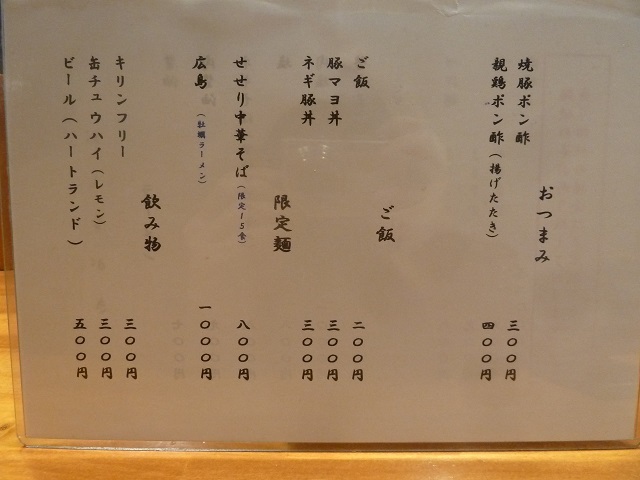 おつまみ
焼豚ポン酢 三〇〇円
親鶏ポン酢（揚げたたき） 四〇〇円
ご飯
ご飯 二〇〇円
豚マヨ丼 三〇〇円
ネギ豚丼 三〇〇円
限定麺
せせり中華そば（限定15食） 八〇〇円
広島（牡蠣ラーメン） 一〇〇〇円
飲み物
キリンフリー 三〇〇円
缶チュウハイ（レモン） 三〇〇円
ビール（ハートランド） 五〇〇円